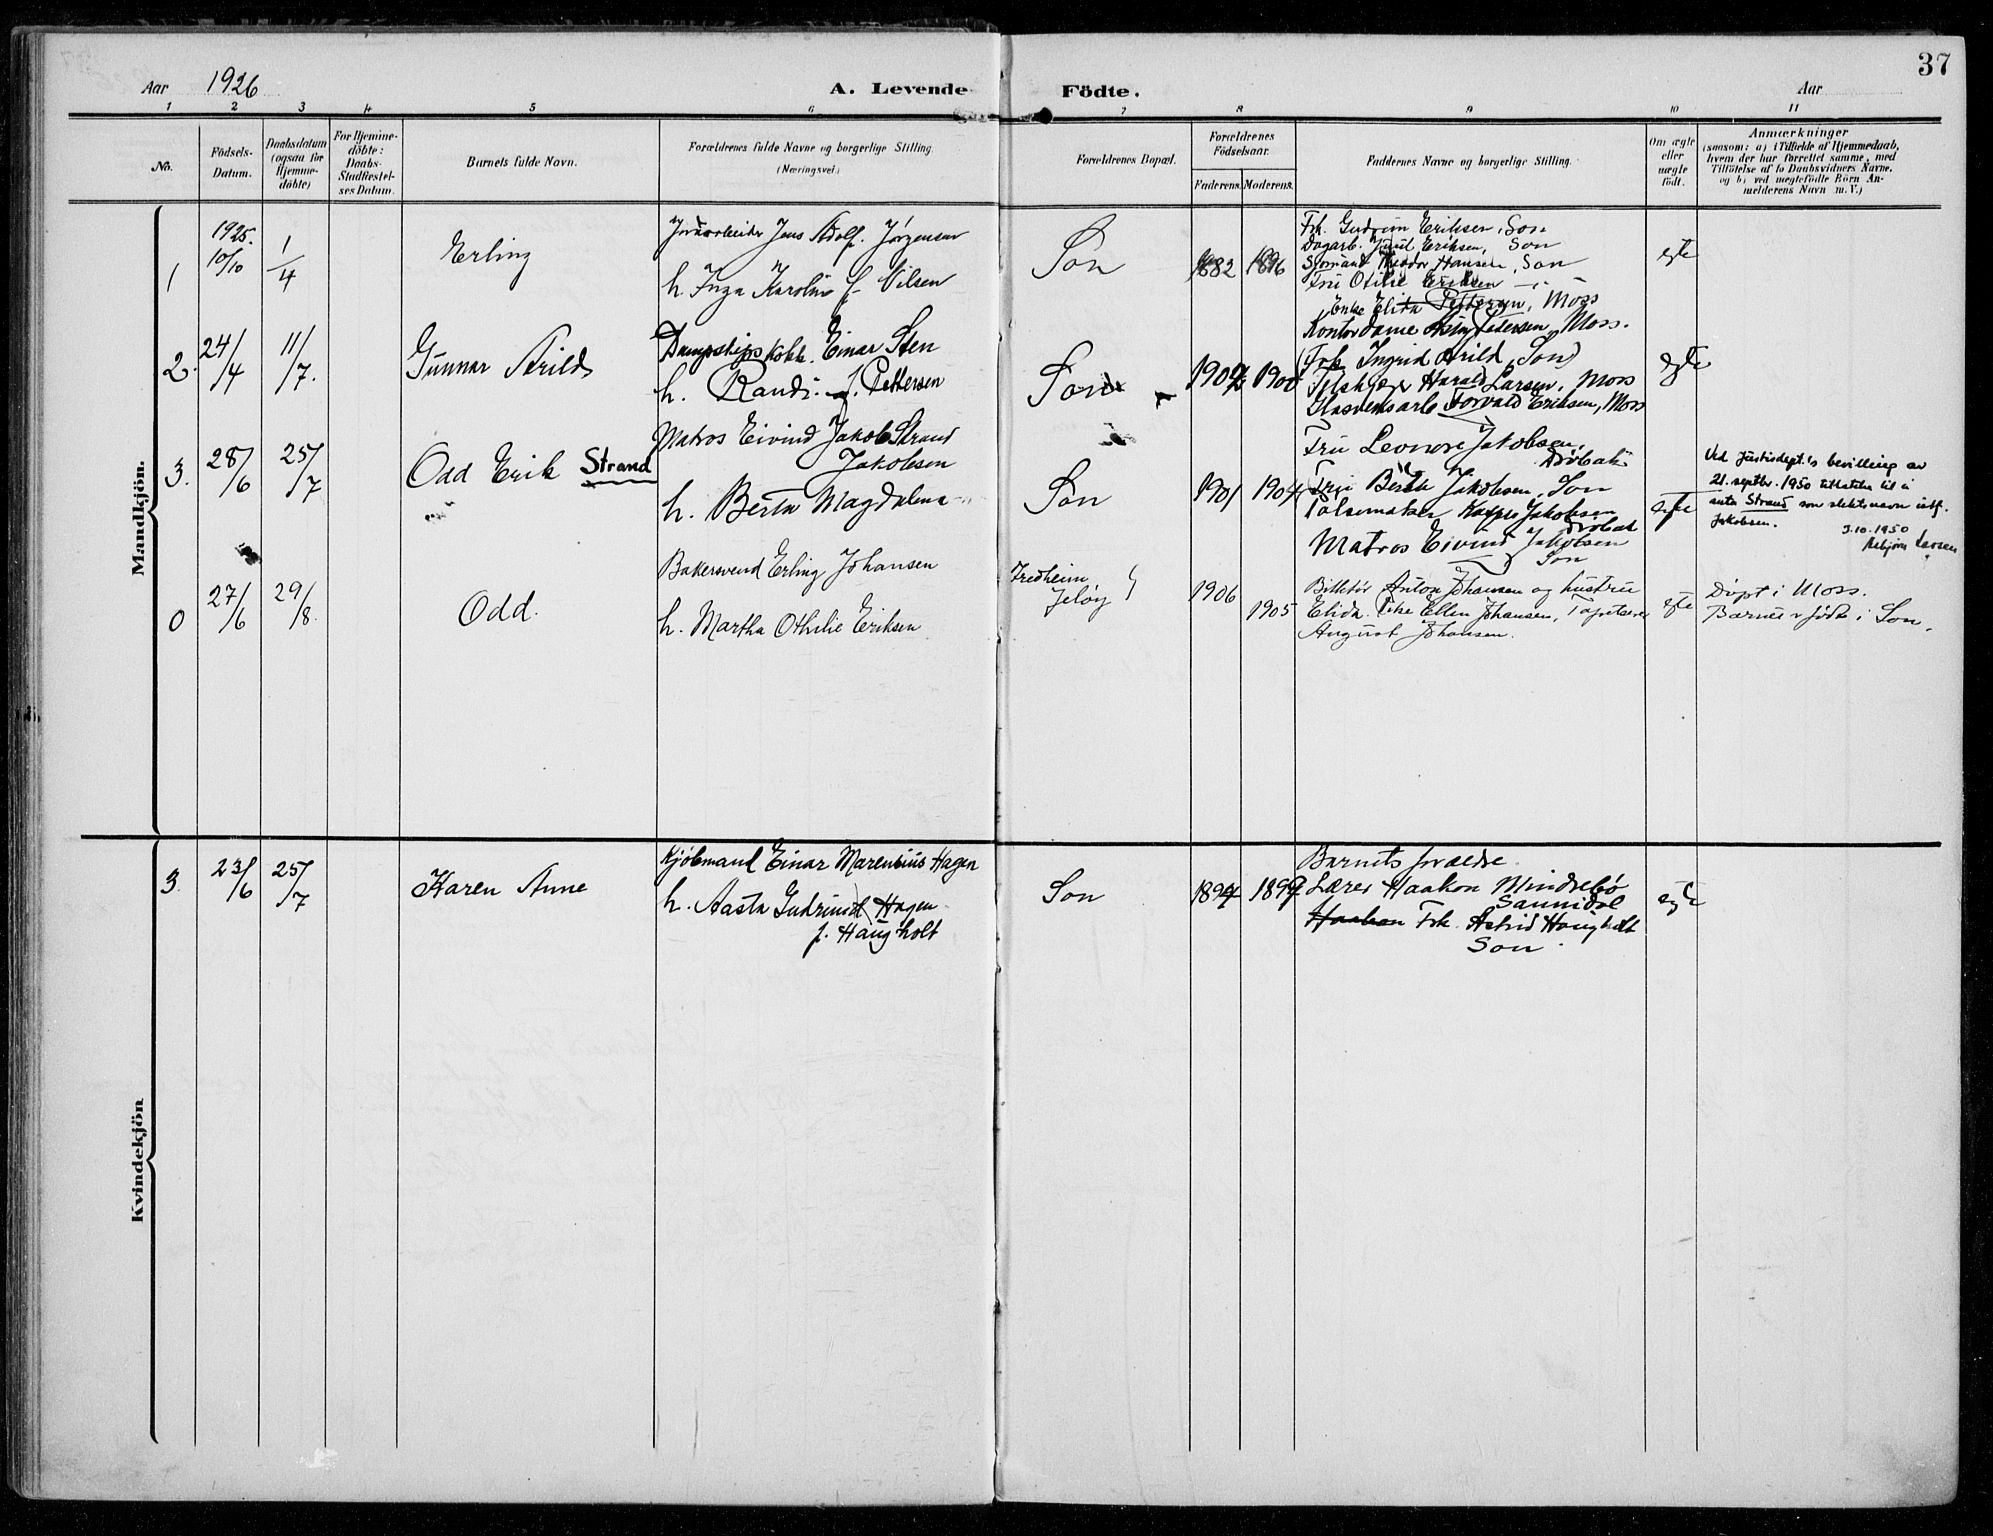 37
Aar 1926
A. Levende
Födte.
Aar
1 2 3 4 5 6 7 8 9 10 11
No.
Födsels-
Datum.
Daabsdatum
(ogsaa for
Hjemme-
döbte)
For Hjemme-
döbte:
Daabs-
Stadfæstel-
ses Datum.
Barnets fulde Navn.
Forældrenes fulde Navne og borgerlige Stilling.
(Næringsvei.)
Forældrenes Bopæl.
Forældrenes
Födselsaar.
Faderens. Moderens.
Faddernes Navne og borgerlige Stilling.
Om ægte
eller
uægte
födt.
Anmærkninger
(saasom: a) i Tilfælde af Hjemmedaab,
hvem der har forrettet samme, med
Tilföielse af to Daabsvidners Navne,
og b) ved uægtefödte Börn An-
melderens Navn m. V.)
Mandkjön.
1
1925.
10/10
1/4
Erling
Jens Adolf Jørgensen
h. Inga Karolin f. Nilsen
Son
1882 1896
Frk. Gudrun Eriksen, Son
Dagarb. Juul Eriksen, Son
Sjømand Theodor Hansen, Son
Fru Otilie Eriksen —
Enke Elida Pettersen, Moss
Kontordame Petersen, Moss.
egte
2.
24/4
11/7.
Gunnar Arild
Dampskips kokk. Einar Sten
h. Randi f. Pettersen
Son
1904 1900
(Frk Ingrid Arild, Son)
Harald Larsen, Moss
Glasverksarb Torvald Eriksen, Moss
egte
3.
28/6
25/7
Odd Erik Strand
Matros Eivind Jakob Strand
Jakobsen
h. Berta Magdalena
Son
1901 1904
Fru Leonore Jakobsen,
Drøbak
Fru Berta Jakobsen, Son
Pølsemaker Jakobsen
Drøbak
Matros Eivind Jakobsen
Son
egte
Ved Justisdept.'s bevilling av
21. septbr. 1950 tillatelse til å
anta Strand som slektsnavn istf.
Jakobsen.
3.10.1950
Asbjørn Larsen
0
27/6
29/8.
Odd.
Bakersvend Erling Johansen
h. Martha Othilie Eriksen
Fredheim
Jeløy
1906
1905
Anton Johansen og hustru
Elida. Frk. Ellen Johansen, Tapetserer
August Johansen.
egte
Døpt i Moss.
Barnet er født i Son.
Kvindekjön
3.
23/6
25/7
Karen Anne
Kjøbmand Einar Marensius Hagen
h. Aasta Gudrund Hagen
f. Haugholt
Son
1894 1899
Barnets forældre.
Lærer Haakon Mindrebø
Sannidal
Haakon Frk. Astrid Haugholt
Son.
egte